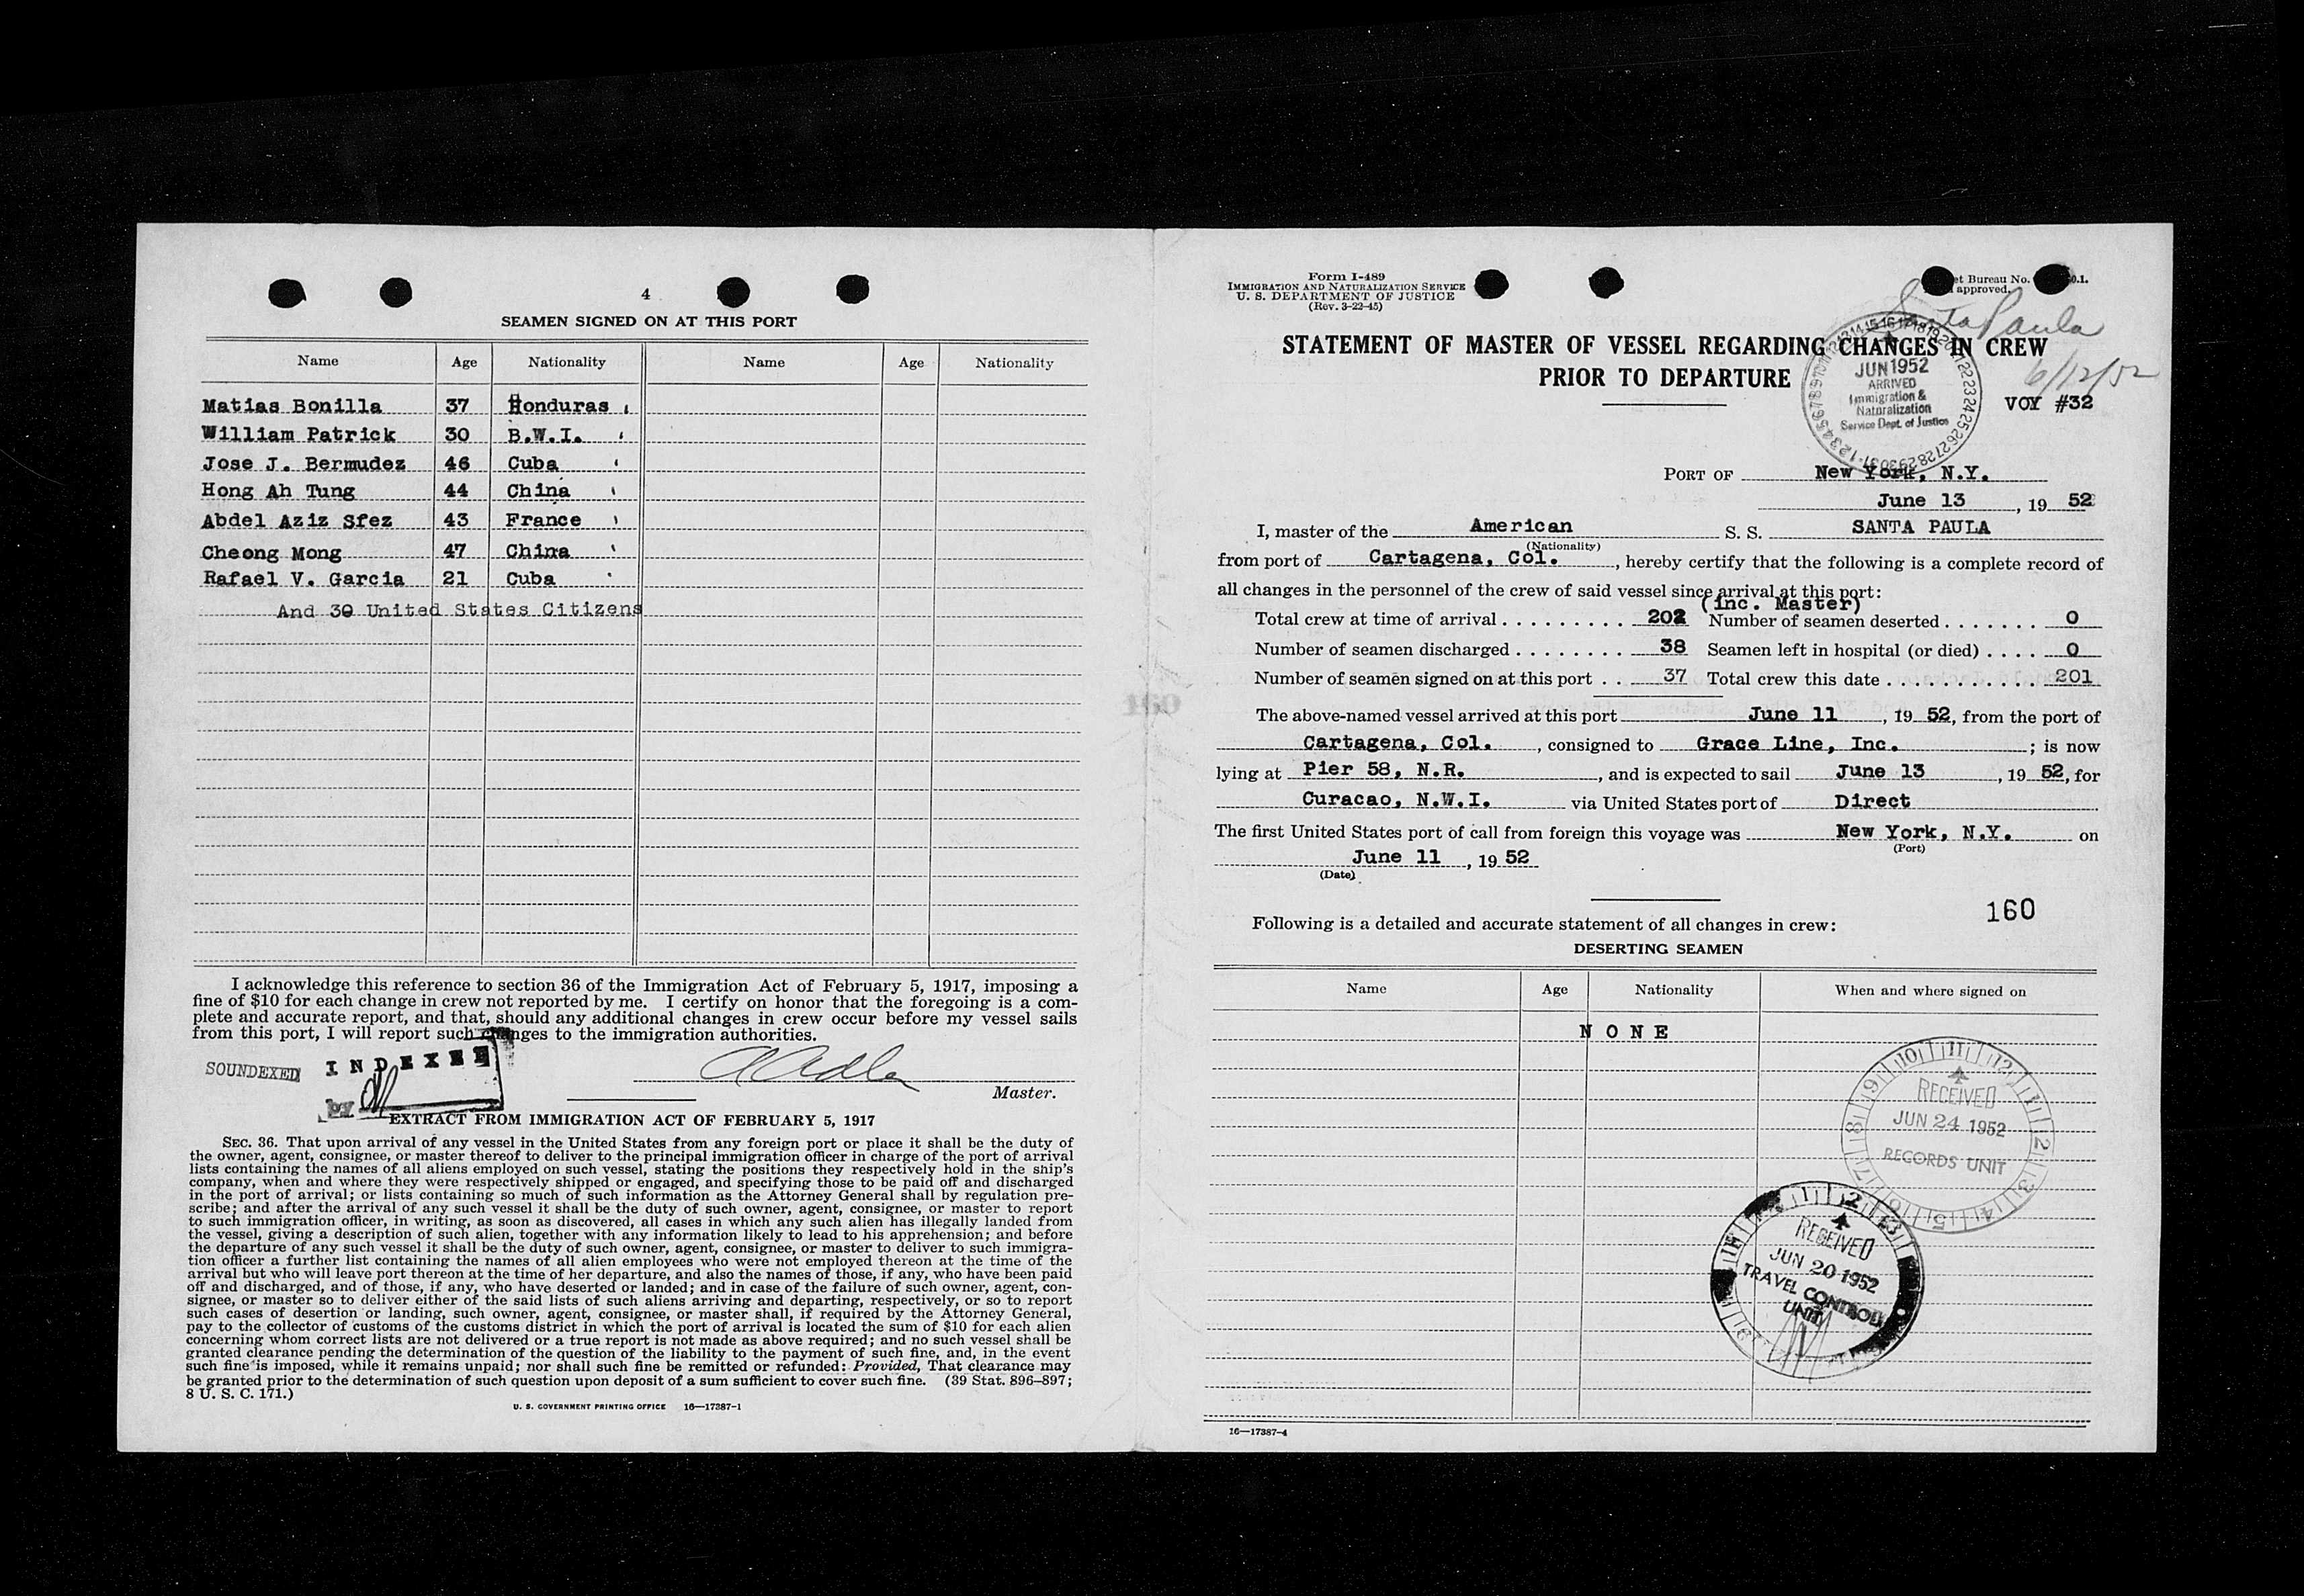 4
SEAMEN SIGNED ON AT THIS PORT
Name Age Nationality Name Age Nationality
Matias Bonilla 37 Honduras
William Patrick 30 B.W.I.
Jose J. Bermudez 46 Cuba
Hong Ah Tung 44 China
Abdel Aziz Sfez 43 France
Cheong Mong 47 China
Rafael V. Garcia 21 Cuba
And 30 United States Citizens
I acknowledge this reference to section 36 of the Immigration Act of February 5, 1917, imposing a
fine of $10 for each change in crew not reported by me. I certify on honor that the foregoing is a com-
plete and accurate report, and that, should any additional changes in crew occur before my vessel sails
from this port, I will report such changes to the immigration authorities.
SOUNDEXED INDEXED
by
Master.
EXTRACT FROM IMMIGRATION ACT OF FEBRUARY 5, 1917
SEC. 36. That upon arrival of any vessel in the United States from any foreign port or place it shall be the duty of
the owner, agent, consignee, or master thereof to deliver to the principal immigration officer in charge of the port of arrival
lists containing the names of all aliens employed on such vessel, stating the positions they respectively hold in the ship's
company, when and where they were respectively shipped or engaged, and specifying those to be paid off and discharged
in the port of arrival; or lists containing so much of such information as the Attorney General shall by regulation pre-
scribe; and after the arrival of any such vessel it shall be the duty of such owner, agent, consignee, or master to report
to such immigration officer, in writing, as soon as discovered, all cases in which any such alien has illegally landed from
the vessel, giving a description of such alien, together with any information likely to lead to his apprehension; and before
the departure of any such vessel it shall be the duty of such owner, agent, consignee, or master to deliver to such immigra-
tion officer a further list containing the names of all alien employees who were not employed thereon at the time of the
arrival but who will leave port thereon at the time of her departure, and also the names of those, if any, who have been paid
off and discharged, and of those, if any, who have deserted or landed; and in case of the failure of such owner, agent, con-
signee, or master so to deliver either of the said lists of such aliens arriving and departing, respectively, or so to report
such cases of desertion or landing, such owner, agent, consignee, or master shall, if required by the Attorney General,
pay to the collector of customs of the customs district in which the port of arrival is located the sum of $10 for each alien
concerning whom correct lists are not delivered or a true report is not made as above required; and no such vessel shall be
granted clearance pending the determination of the question of the liability to the payment of such fine, and, in the event
such fine is imposed, while it remains unpaid; nor shall such fine be remitted or refunded: Provided, That clearance may
be granted prior to the determination of such question upon deposit of a sum sufficient to cover such fine. (39 Stat. 896–897;
8 U. S. C. 171.)
U. S. GOVERNMENT PRINTING OFFICE 16—17387-1
Form I-489
IMMIGRATION AND NATURALIZATION SERVICE
U. S. DEPARTMENT OF JUSTICE
(Rev. 3-22-45)
et Bureau No. 0.1.
approved.
Santa Paula
6/12/52
STATEMENT OF MASTER OF VESSEL REGARDING CHANGES IN CREW
PRIOR TO DEPARTURE
JUN 1952
ARRIVED
Immigration &
Naturalization
Service Dept. of Justice
VOY #32
PORT OF New York, N.Y.
June 13, 19 52
I, master of the American S. S. SANTA PAULA
(Nationality)
from port of Cartagena, Col., hereby certify that the following is a complete record of
all changes in the personnel of the crew of said vessel since arrival at this port:
(inc. Master)
Total crew at time of arrival . . . . . . . . . 202 Number of seamen deserted . . . . . . . 0
Number of seamen discharged . . . . . . . . 38 Seamen left in hospital (or died) . . . . 0
Number of seamen signed on at this port . . 37 Total crew this date . . . . . . . . . . . . 201
The above-named vessel arrived at this port June 11, 19 52, from the port of
Cartagena, Col., consigned to Grace Line, Inc. ; is now
lying at Pier 58, N.R., and is expected to sail June 13, 19 52, for
Curacao, N.W.I. via United States port of Direct
The first United States port of call from foreign this voyage was New York, N.Y. on
(Port)
June 11, 19 52
(Date)
160
Following is a detailed and accurate statement of all changes in crew:
DESERTING SEAMEN
Name Age Nationality When and where signed on
NONE
RECEIVED
JUN 24 1952
RECORDS UNIT
RECEIVED
JUN 20 1952
TRAVEL CONTROL
UNIT
16—17387-4